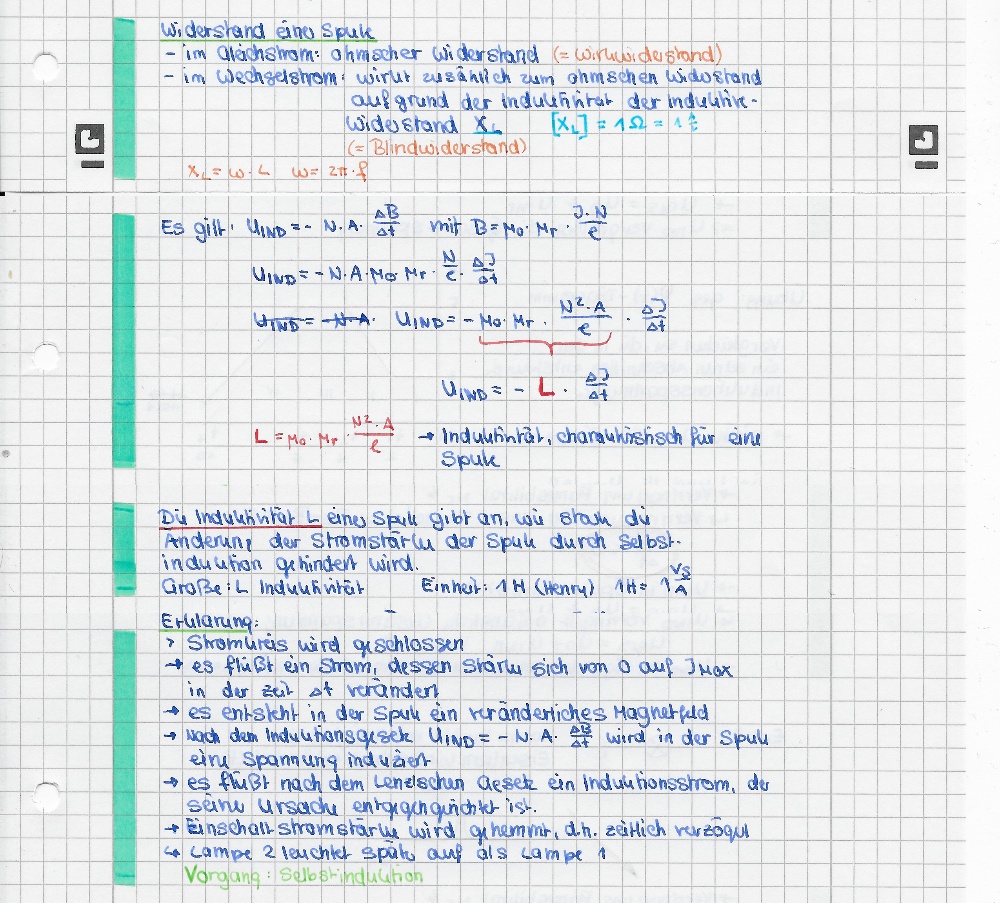 Widerstand einer Spule
- im Gleichstrom: ohmscher Widerstand (= Wirkwiderstand)
- im Wechselstrom: wirkt zusätzlich zum ohmschen Widerstand
aufgrund der Induktivität der induktive
Widerstand X_L [X_L] = 1 Ω = 1
(= Blindwiderstand)
X_L = ω · L ω = 2π · f
Es gilt: U_IND = - N · A · ΔB/Δt mit B = μ₀ · μ_r · I · N/ℓ
U_IND = - N · A · μ₀ μ_r · N/ℓ · ΔI/Δt
U_IND = - N · A · U_IND = - μ₀ · μ_r · N² · A/ℓ · ΔI/Δt
U_IND = - L · ΔI/Δt
L = μ₀ · μ_r · N² · A/ℓ → Induktivität, charakteristisch für eine
Spule
Die Induktivität L einer Spule gibt an, wie stark die
Änderung der Stromstärke der Spule durch Selbst-
induktion gehindert wird.
Größe: L Induktivität Einheit: 1 H (Henry) 1H = 1 Vs/A
Erklärung:
> Stromkreis wird geschlossen
→ es flüßt ein Strom, dessen Stärke sich von 0 auf I_MAX
in der Zeit Δt verändert
→ es entsteht in der Spule ein veränderliches Magnetfeld
→ Nach dem Induktionsgesetz U_IND = - N · A · ΔB/Δt wird in der Spule
eine Spannung induziert
→ es flüßt nach dem Lenzschen Gesetz ein Induktionsstrom, der
seine Ursache entgegengerichtet ist.
→ Einschaltstromstärke wird gehemmt, d.h. zeitlich verzögert
↳ Lampe 2 leuchtet später auf als Lampe 1
Vorgang: Selbstinduktion